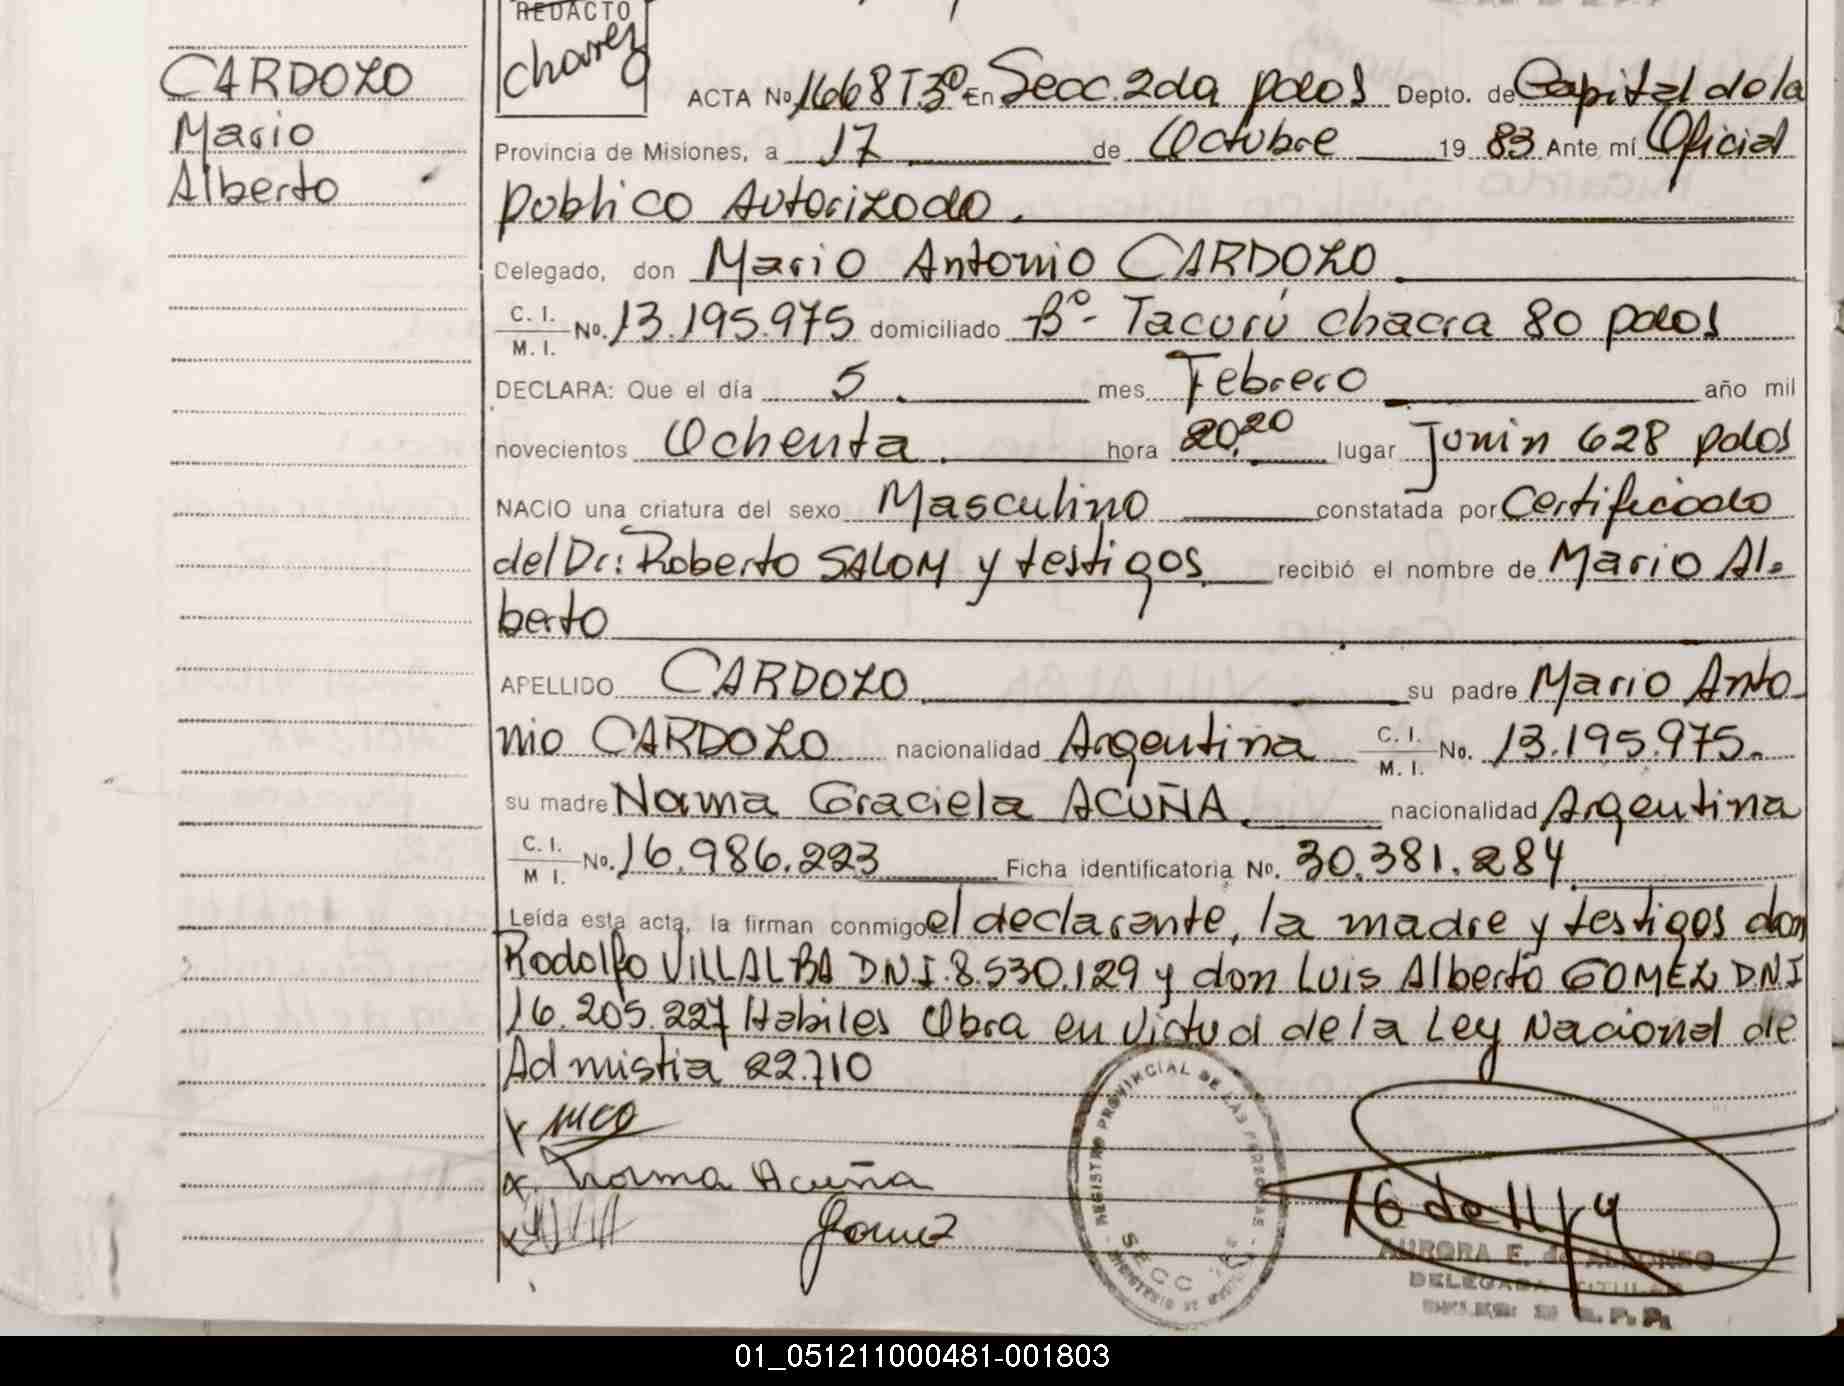 REDACTO
Chavez
CARDOZO
Mario
Alberto
ACTA No. 1668 T3º En Secc. 2da pdos Depto. de Capital de la
Provincia de Misiones, a 17 de Octubre 19 83 Ante mí Oficial
publico Autorizado.
Delegado, don Mario Antonio CARDOZO
C. I.
M. I. No. 13.195.975 domiciliado Bº- Tacurú chacra 80 pdos
DECLARA: Que el día 5 mes Febrero año mil
novecientos Ochenta hora 20,20 lugar Junin 628 pdos
NACIO una criatura del sexo Masculino constatada por Certificado
del Dr: Roberto SALOM y testigos recibió el nombre de Mario Al-
berto
APELLIDO CARDOZO su padre Mario Anto
nio CARDOZO nacionalidad Argentina C. I. M. I. No. 13.195.975.
su madre Norma Graciela ACUÑA nacionalidad Argentina
C. I. M I. No. 16.986.223 Ficha identificatoria No. 30.381.284
Leída esta acta, la firman conmigo el declarante, la madre y testigos don
Rodolfo VILLALBA D.N.I. 8.530.129 y don Luis Alberto GOMEZ DNI
16.205.227 Habiles Obra en Virtud de la Ley Nacional de
Admistia 22.710
Norma Acuña
Gomez
REGISTRO PROVINCIAL DE LAS PERSONAS
SECC
AURORA E. de
DELEGADA TITULAR
01_051211000481-001803